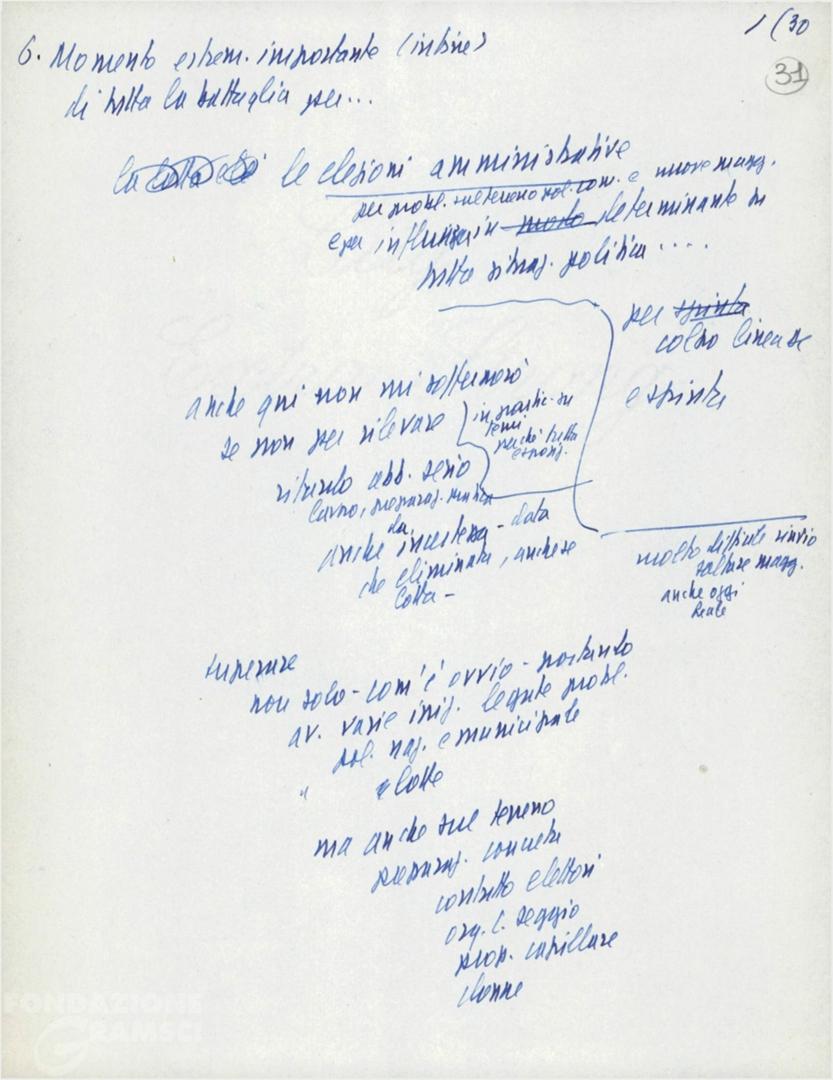 1 (30
31
6. Momento estrem. importante (infine)
di tutta la battaglia per...
la lotta le elezioni amministrative
per probl. sul terreno pol. com. e nuove magg.
e per influenzare in modo determinante su
tutta situaz. politica ....
per spinta
colpo linea DC
e spinta
anche qui non mi soffermerò
se non per rilevare
in partic. su
temi
perché tratta
esposiz.
ritardo abb. serio
lavoro, preparaz.
da
anche incertezza - data
che eliminata, anche se
lotta -
molto difficile rinvio
salture magg.
anche oggi
superare
non solo - com'è ovvio - portando
av. varie iniz. legate probl.
pol. naz. e municipale
" e lotte
ma anche sul terreno
preparaz. concreta
contatto elettori
org. C. seggio
prop. capillare
donne
FONDAZIONE
GRAMSCI